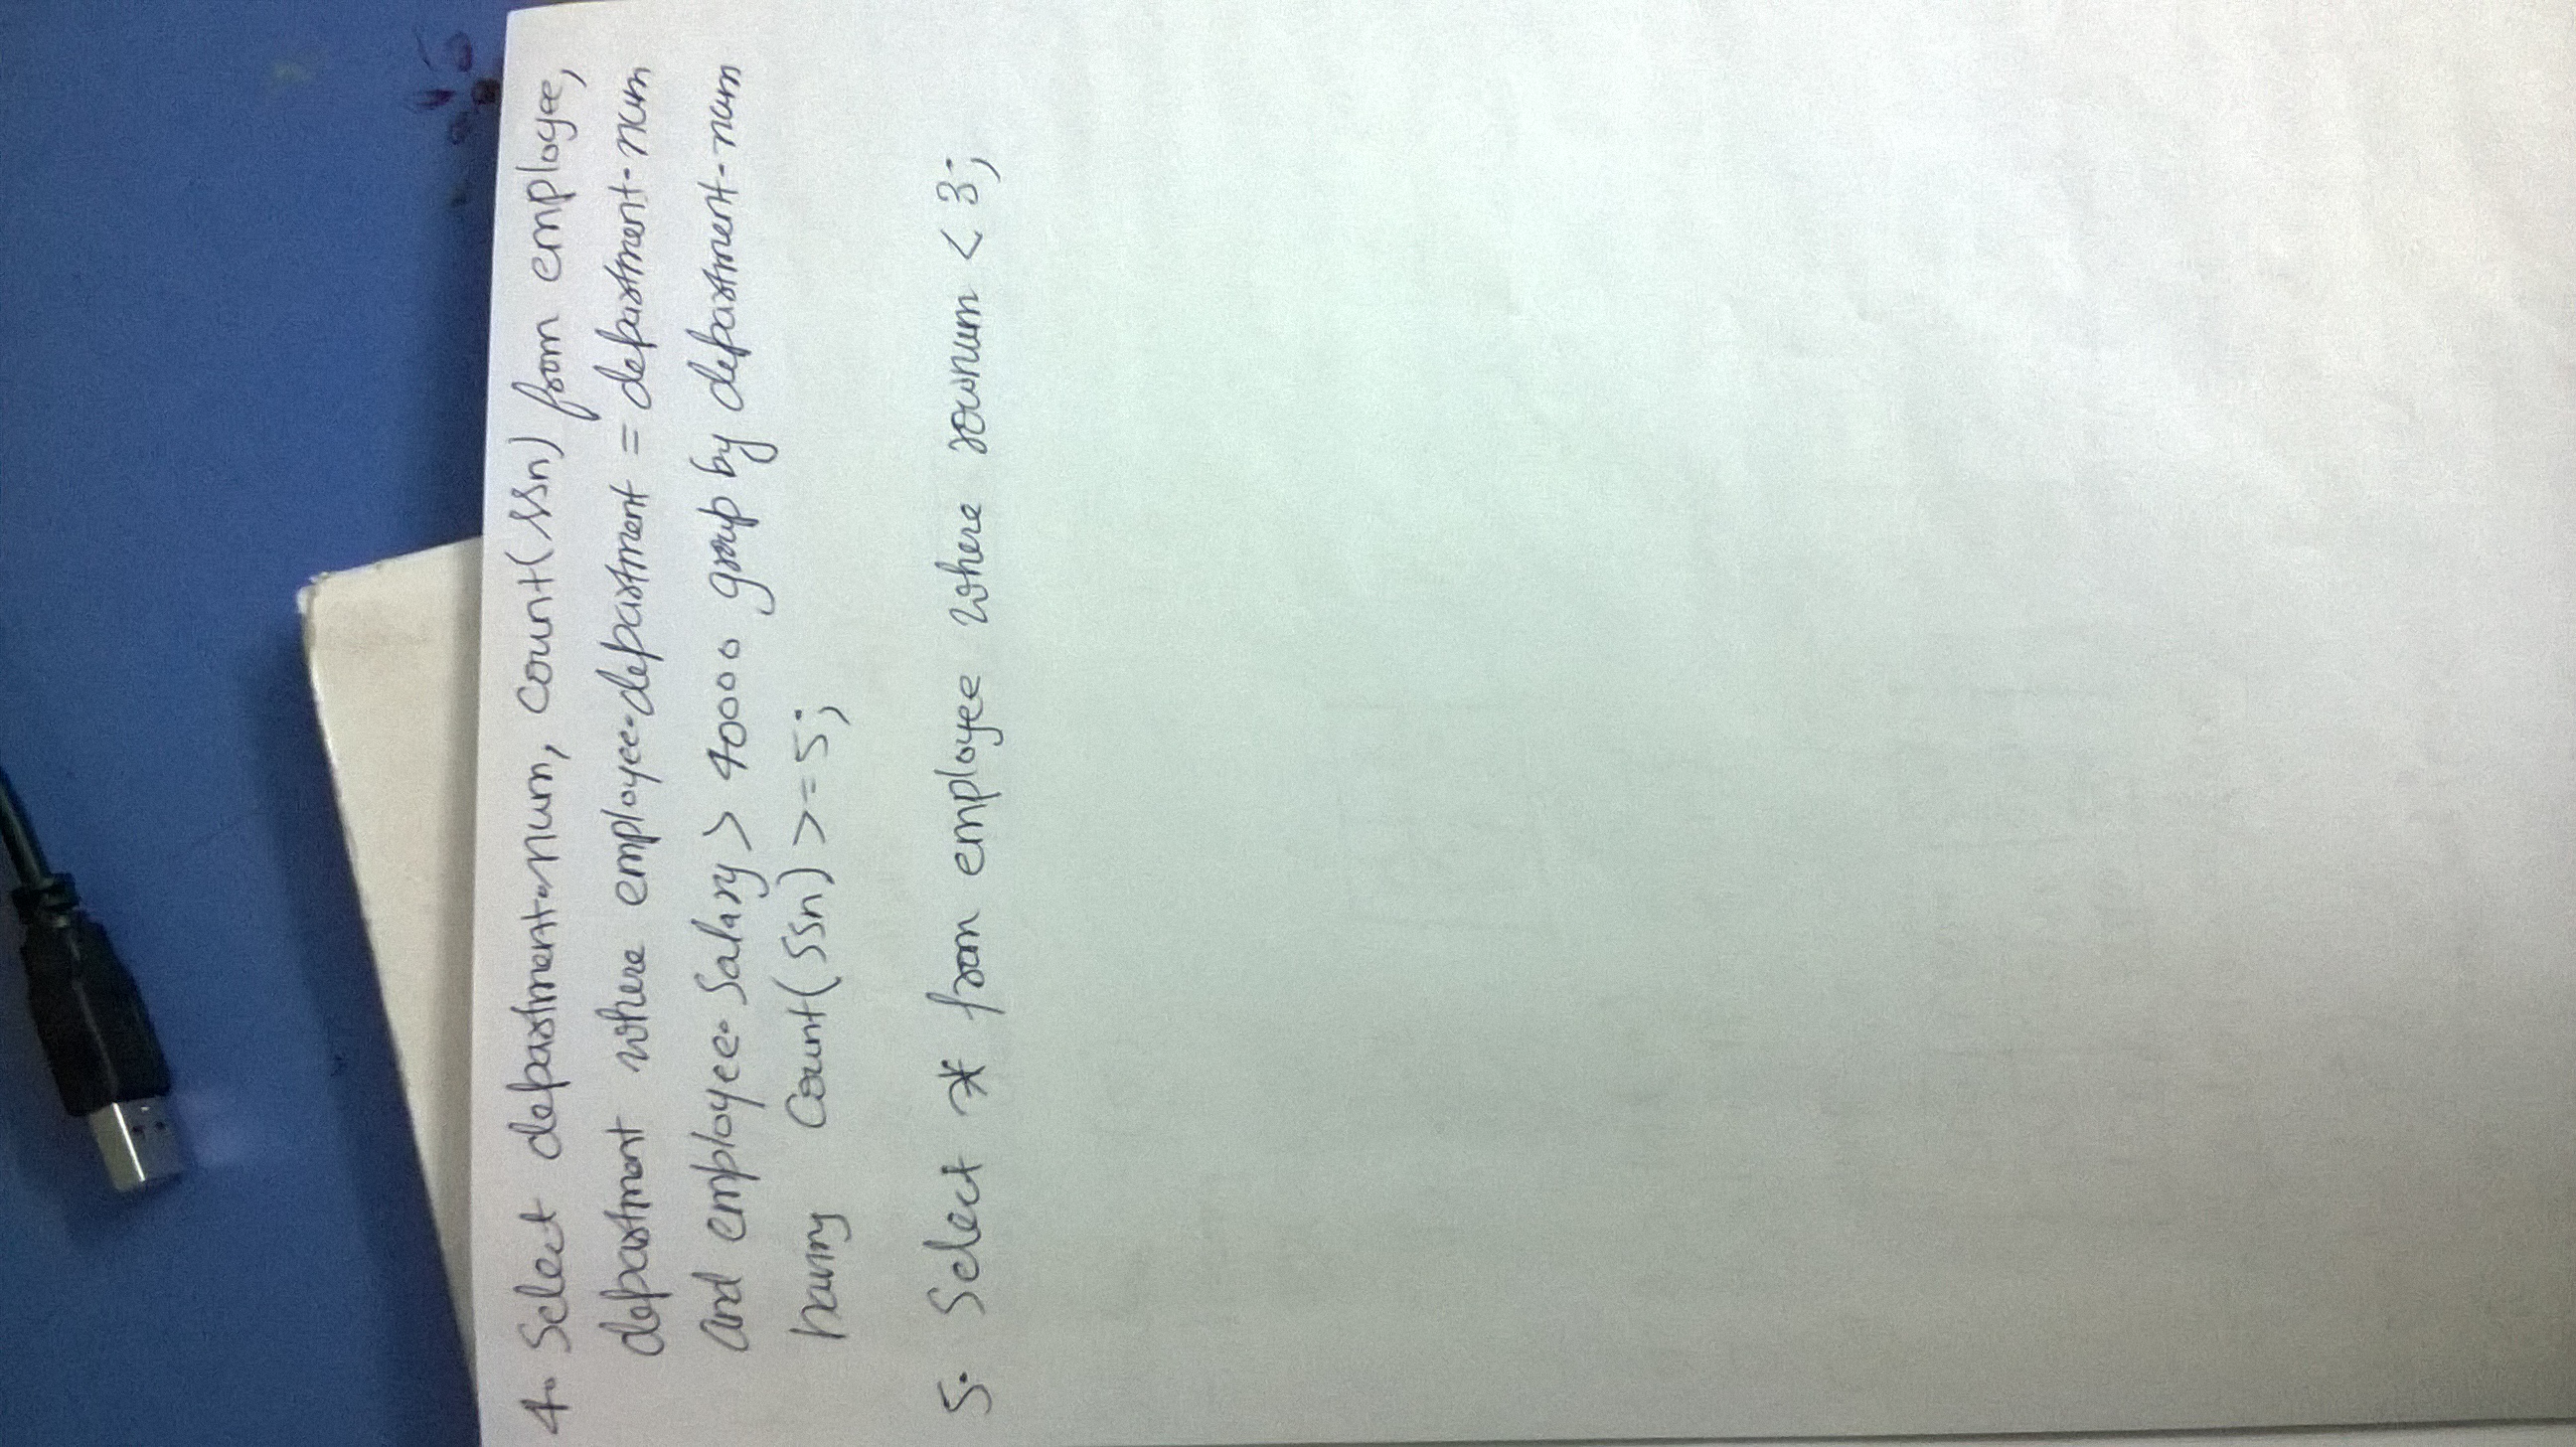 4. Select department.num, count(ssn) from employee,
department where employee.department = department.num
and employee.salary > 40000 group by department.num
having count(ssn) >= 5;
5. Select * from employee where rownum < 3;